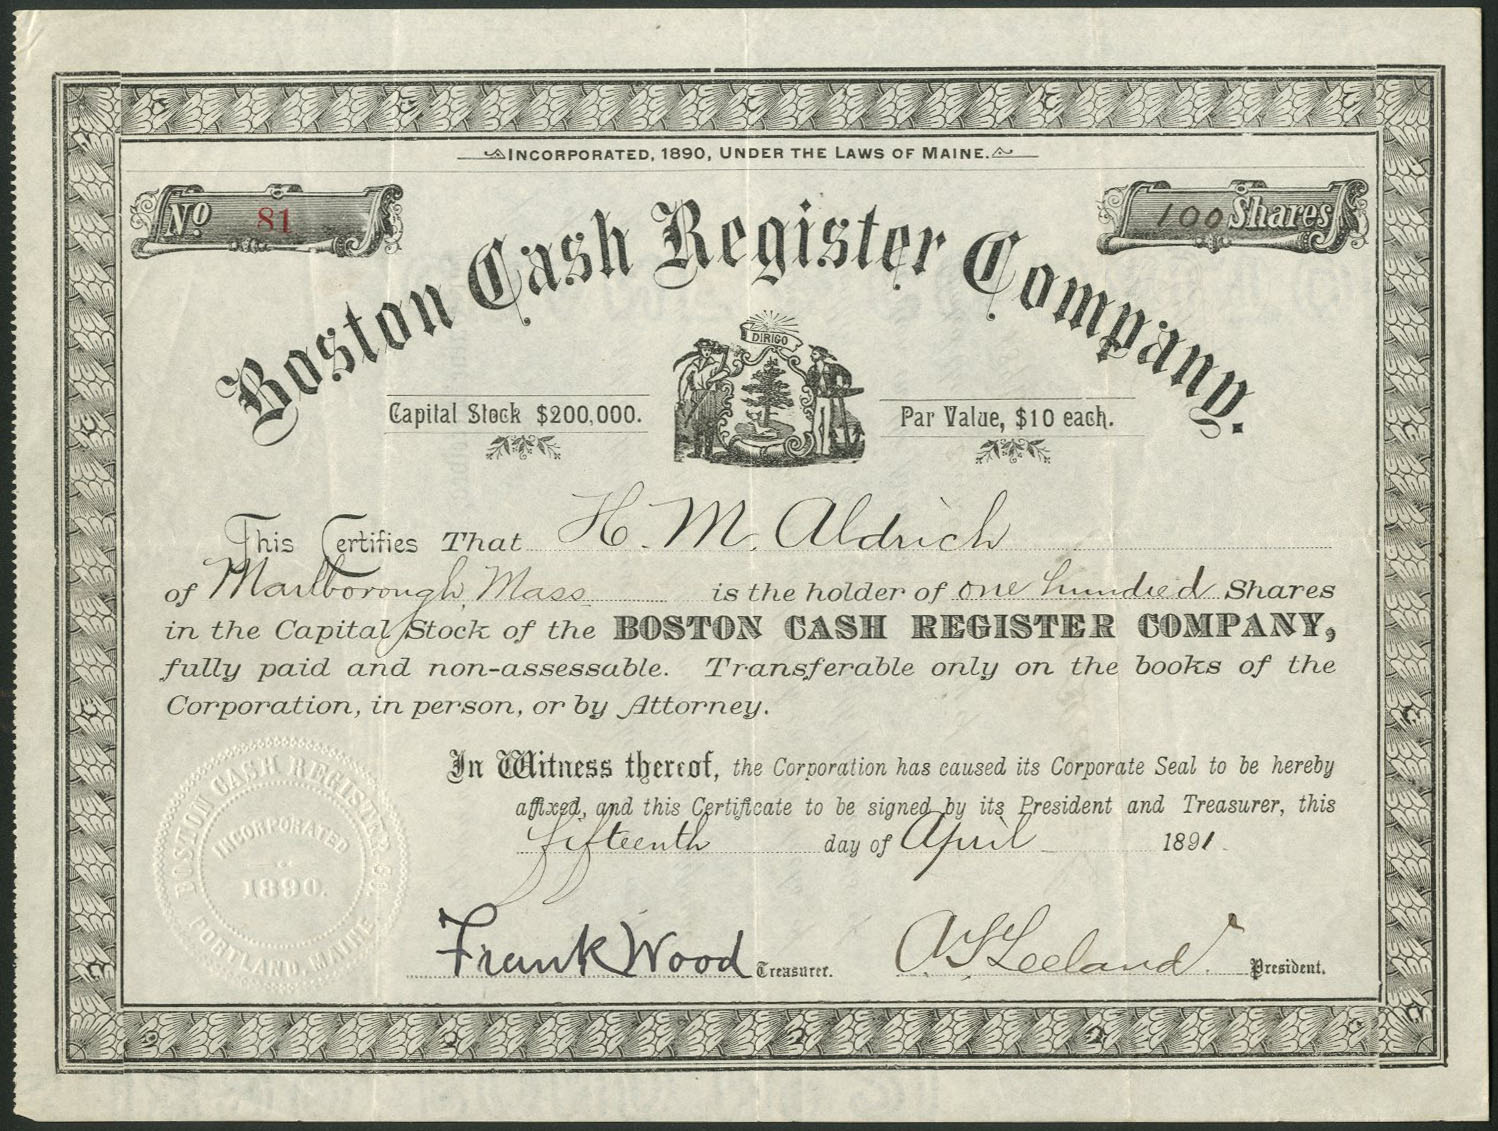 INCORPORATED, 1890, UNDER THE LAWS OF MAINE.
No 81
100 Shares
Boston Cash Register Company.
DIRIGO
Capital Stock $200,000.
Par Value, $10 each.
This Certifies That H. M. Aldrich
of Marlborough, Mass is the holder of one hundred Shares
in the Capital Stock of the BOSTON CASH REGISTER COMPANY,
fully paid and non-assessable. Transferable only on the books of the
Corporation, in person, or by Attorney.
In Witness thereof, the Corporation has caused its Corporate Seal to be hereby
affixed, and this Certificate to be signed by its President and Treasurer, this
fifteenth day of April 1891.
BOSTON CASH REGISTER CO.
INCORPORATED
1890.
PORTLAND, MAINE
Frank Wood Treasurer.
Leeland President.